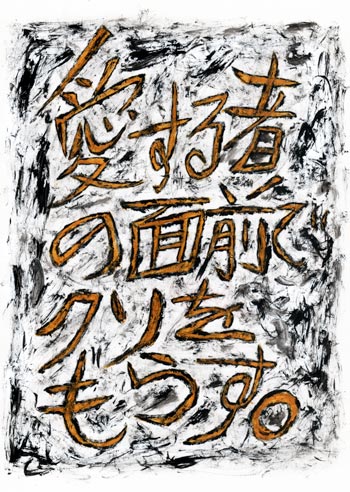 愛する者
の面前で
クソを
もらす。